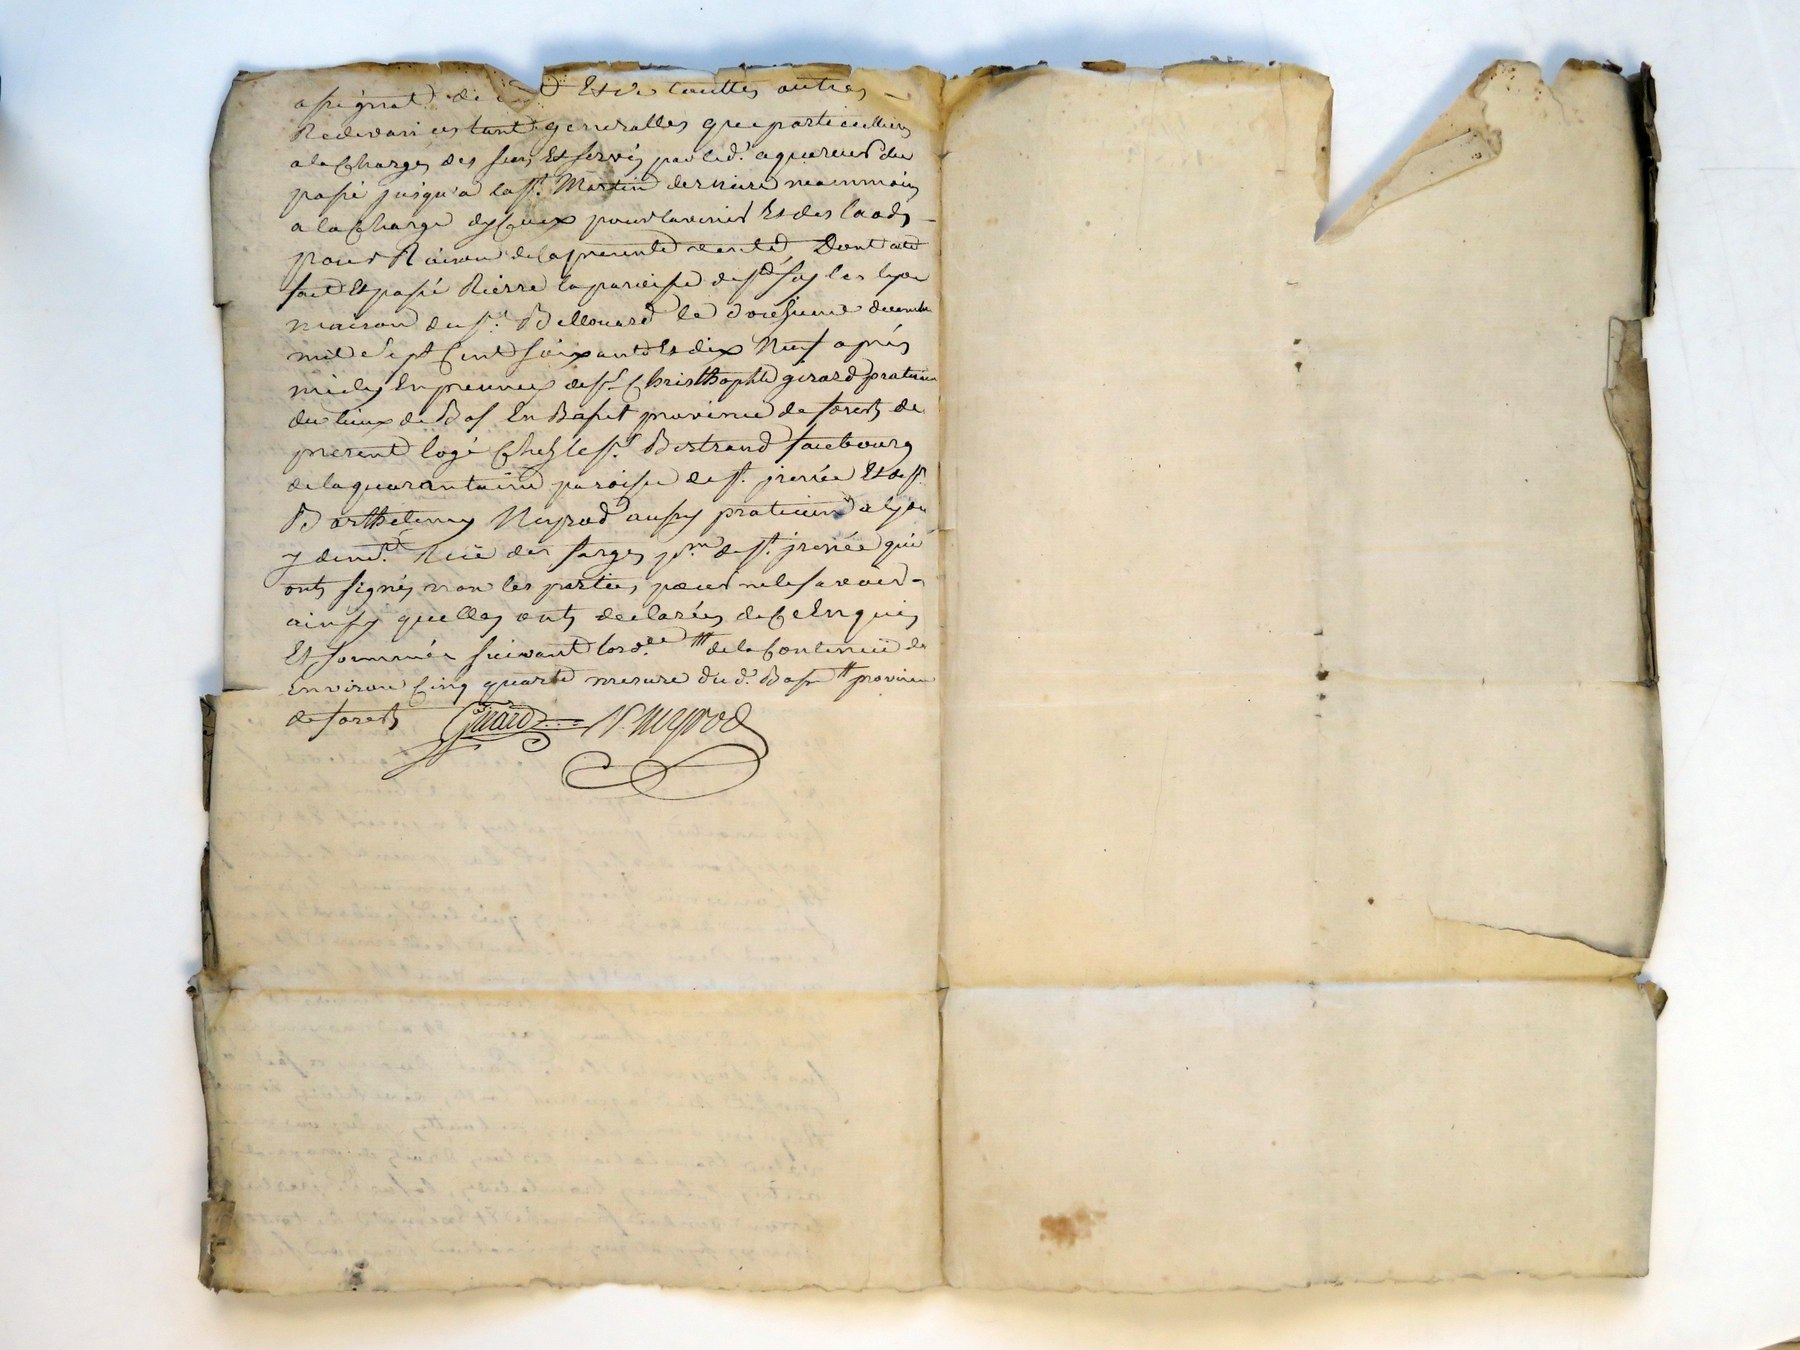 asignat de Et de touttes autres
Redevances tant generalles que particullieres
a la Charge des sens Et servis par led. aquereur du
passé jusqu'a la st. Martin derniere neammoins
a la Charge dyceux pour lavenir Et des laods
pour Raison de la presente vente Dont acte
fait Et passé Rierre la paroisse de ste foy les lyon
maison du sr. Bellouard le douzieme decembre
mil sept Cent soixante Et dix Neuf après
midy En presence de sr. Christhophle girard praticien
du lieux de Bas En Basset province de forest de
present logé Chez le sr. Bertrand faubourg
de la quarantaine paroisse de st. jrenée Et de sr.
Barthelemy Neyrod aussy praticien a lyon
y demt. Ruë des farges psse. de st. jrenée qui
onts signés non les parties pour ne le savoir
ainsy quelles onts declarées de Ce Enquis
Et sommées suivant lordce # de la Contenuë de
Environ Cinq quarte mesure dud. Bas # province
de forest Girard Neyrod